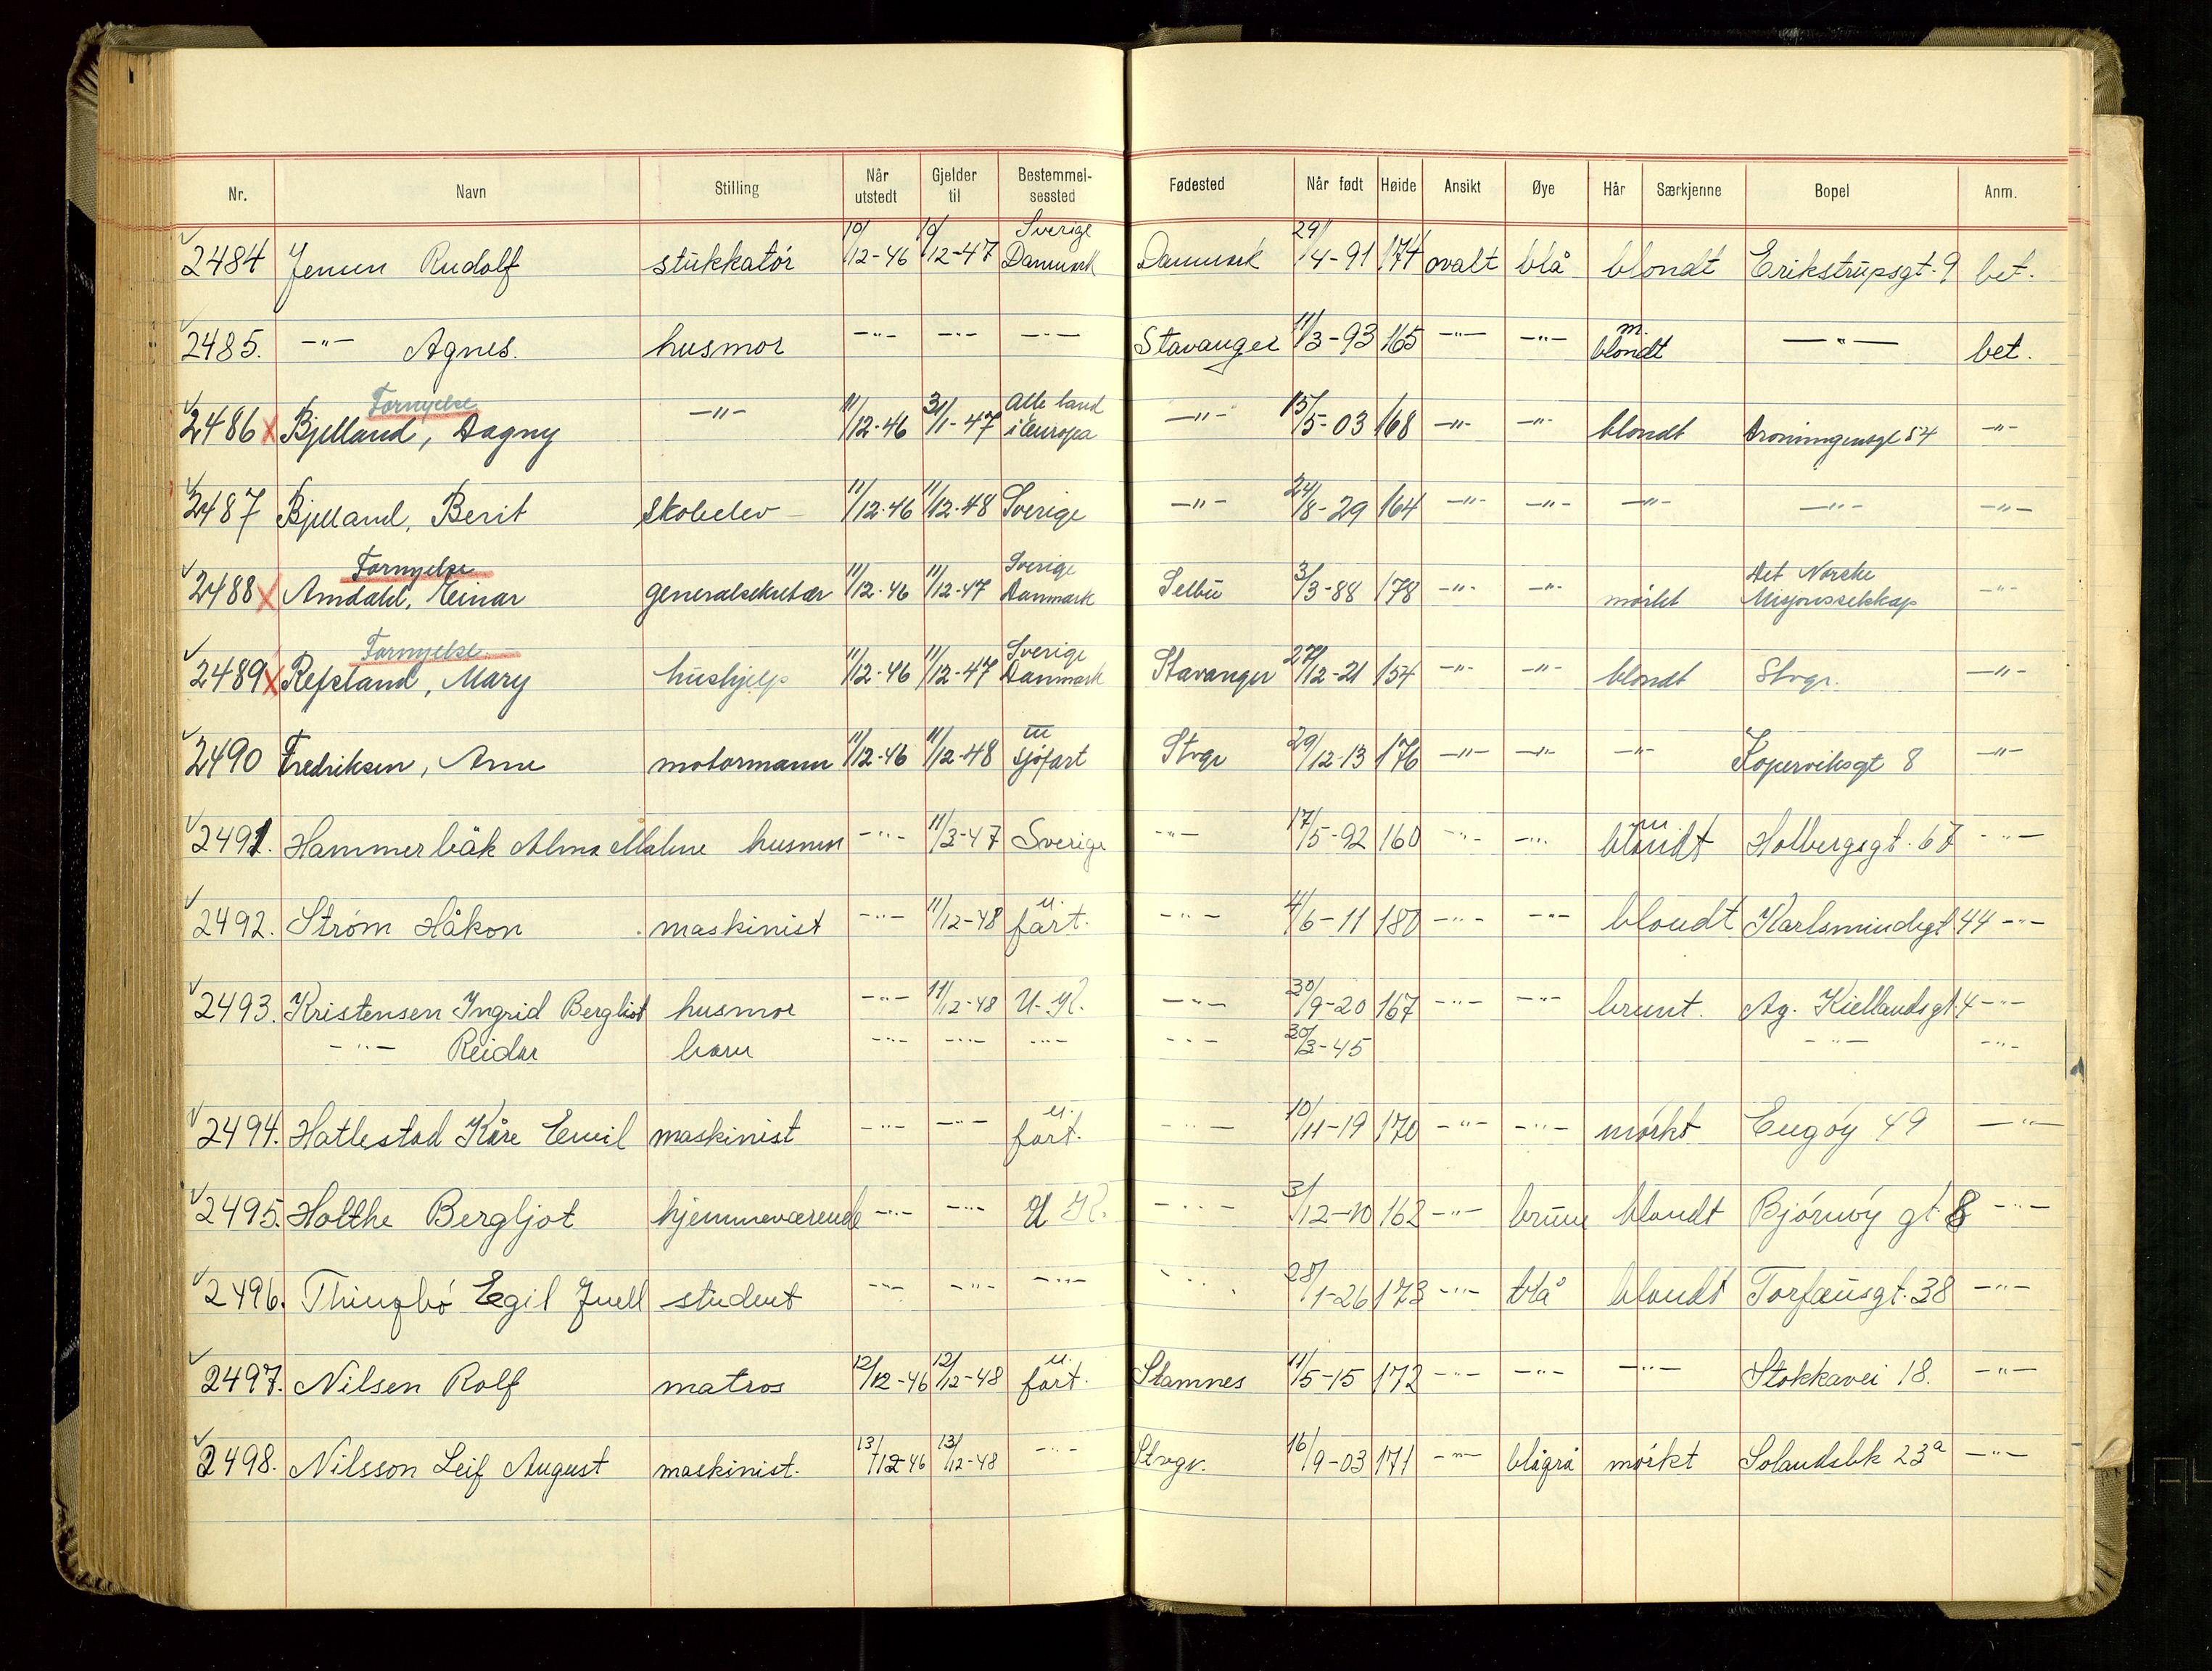 Nr. Navn Stilling Når utstedt Gjelder til Bestemmel-sessted Fødested Når født Høide Ansikt Øye Hår Særkjenne Bopel Anm.
2484 Jensen Rudolf stukkatør 10/12-46 10/12-47 Sverige Danmark Danmark 29/4-91 174 ovalt blå blondt Erikstrupsgt. 9 bet.
2485. -"- Agnes. husmor -"- -"- -"- Stavanger 11/3-93 165 -"- -"- m. blondt -"- bet.
Fornyelse
2486 x Bjelland, Dagny -"- 11/12-46 31/1-47 Alle land i Europa -"- 15/5-03 168 -"- -"- blondt Dronningensgt 54 -"-
2487 Bjelland, Berit skoleelev 11/12-46 11/12-48 Sverige -"- 24/8-29 164 -"- -"- -"- -"- -"-
Fornyelse
2488 x Amdahl, Einar generalsekretær 11/12-46 11/12-47 Sverige Danmark Selbu 3/3-88 178 -"- -"- mørkt Det Norske Misjonsselskap -"-
Fornyelse
2489 x Refsland, Mary hushjelp 11/12-46 11/12-47 Sverige Danmark Stavanger 27/12-21 154 -"- -"- blondt Stvgr. -"-
2490 Fredriksen, Arne motormann 11/12-46 11/12-48 til sjøfart Stvgr 29/12-13 176 -"- -"- -"- Koperviksgt 8 -"-
2491. Hammerbäk Alma Malene husmor -"- 11/3-47 Sverige -"- 17/5-92 160 -"- -"- m blondt Holbergsgt. 67 -"-
2492. Strøm Håkon maskinist -"- 11/12-48 u. fart. -"- 4/6-11 180 -"- -"- blondt Karlsmindegt 44 -"-
2493. Kristensen Ingrid Bergliot husmor -"- 11/12-48 U.K. -"- 30/9-20 167 -"- -"- brunt. Ag. Kiellandsgt. 4 -"-
-"- Reidar barn -"- -"- -"- -"- 30/3-45 -"- -"-
2494. Hatlestad Kåre Emil maskinist -"- -"- u. fart. -"- 10/11-19 170 -"- -"- mørkt Engøy 49 -"-
2495. Holthe Bergljot hjemmeværende -"- -"- U.K. -"- 31/12-10 162 -"- brune blondt Bjørnøy gt. 8 -"-
2496. Thingbø Egil Juell student -"- -"- -"- -"- 28/1-26 173 -"- blå blondt Torfæusgt. 38 -"-
2497. Nilsen Rolf matros 12/12-46 12/12-48 u. fart. Stamnes 11/5-15 172 -"- -"- -"- Stokkavei 18. -"-
2498. Nilsson Leif August maskinist. 13/12-46 13/12-48 -"- Stvgr. 16/9-03 171 -"- blågrå mørkt Solandsbk 23a -"-